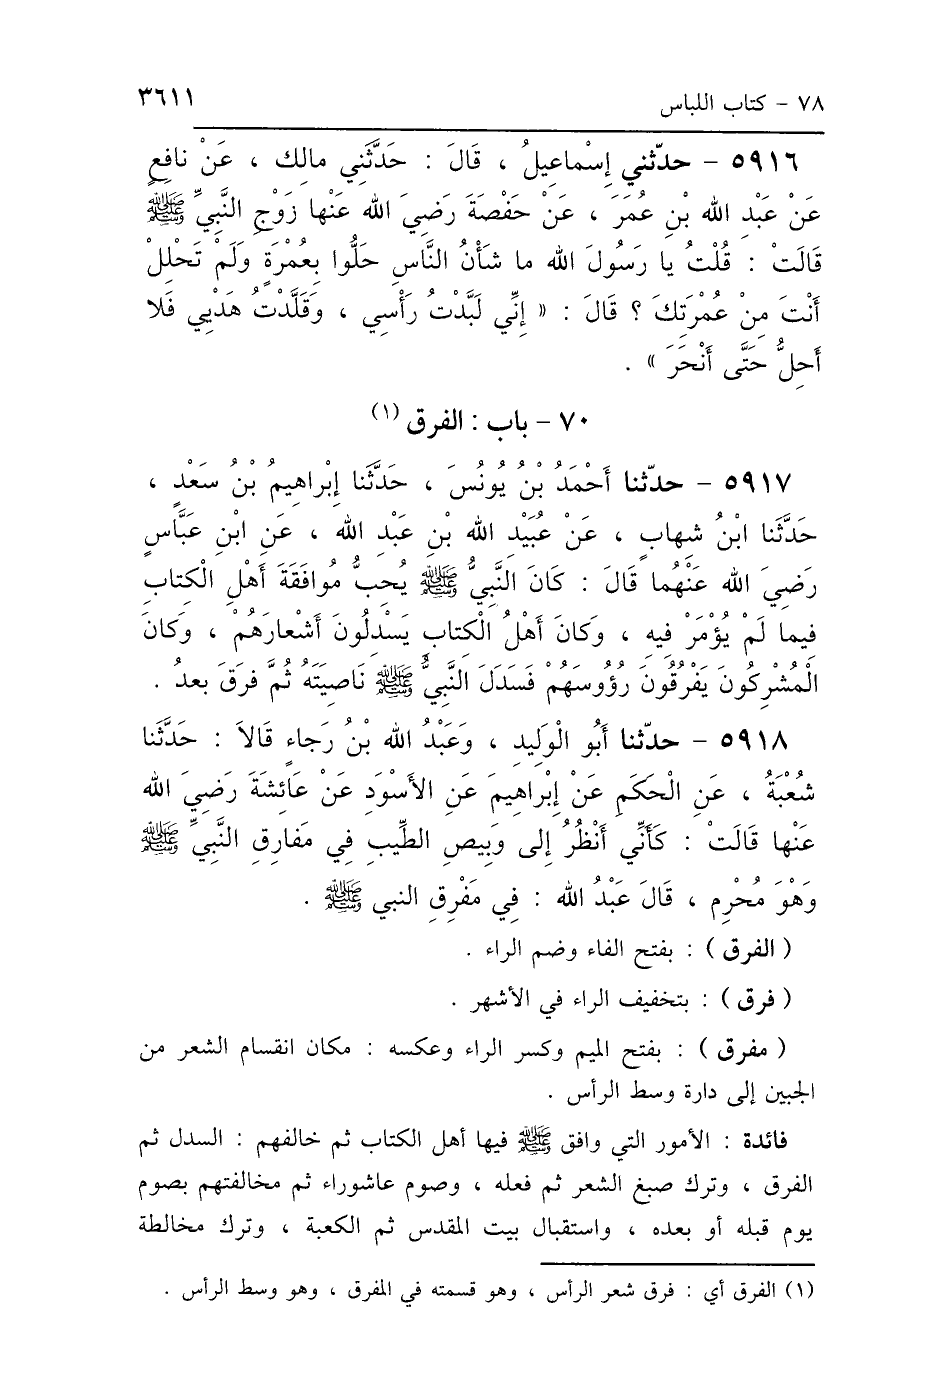 ٧٨ - كتاب اللباس ٣٦١١
٥٩١٦ - حدّثني إِسْماعِيلُ ، قَالَ : حَدَّثَنِي مالِك ، عَنْ نافِعٍ
عَنْ عَبْدِ الله بْنِ عُمَرَ ، عَنْ حَفْصَةَ رَضِيَ الله عَنْها زَوْجِ النَّبِيِّ ﷺ
قَالَتْ : قُلْتُ يا رَسُولَ الله ما شَأْنُ النَّاسِ حَلُّوا بِعُمْرَةٍ وَلَمْ تَحْلِلْ
أَنْتَ مِنْ عُمْرَتِكَ ؟ قَالَ : « إِنِّي لَبَّدْتُ رَأْسِي ، وَقَلَّدْتُ هَدْيِي فَلا
أَحِلُّ حَتَّى أَنْحَرَ » .
٧٠ - باب : الفرق (١)
٥٩١٧ - حدّثنا أَحْمَدُ بْنُ يُونُسَ ، حَدَّثَنا إِبْراهِيمُ بْنُ سَعْدٍ ،
حَدَّثَنا ابْنُ شِهابٍ ، عَنْ عُبَيْدِ الله بْنِ عَبْدِ الله ، عَنِ ابْنِ عَبَّاسٍ
رَضِيَ الله عَنْهُما قَالَ : كَانَ النَّبِيُّ ﷺ يُحِبُّ مُوافَقَةَ أَهْلِ الْكِتابِ
فِيما لَمْ يُؤْمَرْ فِيهِ ، وَكَانَ أَهْلُ الْكِتابِ يَسْدِلُونَ أَشْعارَهُمْ ، وَكَانَ
الْمُشْرِكُونَ يَفْرُقُونَ رُؤُوسَهُمْ فَسَدَلَ النَّبِيُّ ﷺ نَاصِيَتَهُ ثُمَّ فَرَقَ بَعدُ .
٥٩١٨ - حدّثنا أَبُو الْوَلِيدِ ، وَعَبْدُ الله بْنُ رَجاءٍ قَالاَ : حَدَّثَنا
شُعْبَةُ ، عَنِ الْحَكَمِ عَنْ إِبْراهِيمَ عَنِ الأَسْوَدِ عَنْ عَائِشَةَ رَضِيَ الله
عَنْها قَالَتْ : كَأَنِّي أَنْظُرُ إِلى وَبِيصِ الطِّيبِ فِي مَفارِقِ النَّبِيِّ ﷺ
وَهْوَ مُحْرِم ، قَالَ عَبْدُ الله : فِي مَفْرِقِ النبي ﷺ .
( الفرق ) : بفتح الفاء وضم الراء .
( فرق ) : بتخفيف الراء في الأشهر .
( مفرق ) : بفتح الميم وكسر الراء وعكسه : مكان انقسام الشعر من
الجبين إلى دارة وسط الرأس .
فائدة : الأمور التي وافق ﷺ فيها أهل الكتاب ثم خالفهم : السدل ثم
الفرق ، وترك صبغ الشعر ثم فعله ، وصوم عاشوراء ثم مخالفتهم بصوم
يوم قبله أو بعده ، واستقبال بيت المقدس ثم الكعبة ، وترك مخالطة
(١) الفرق أي : فرق شعر الرأس ، وهو قسمته في المفرق ، وهو وسط الرأس .